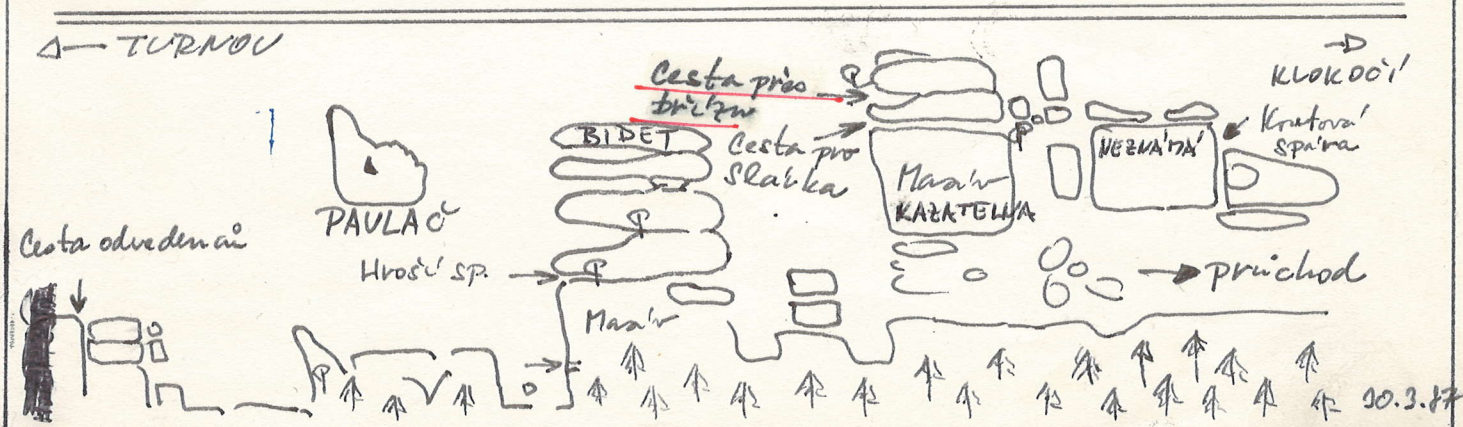 TURNOV
KLOKOČÍ
Cesta přes
břízu
BIDET
Cesta pro
Slávka
Masiv
KAZATELNA
NEZNÁMÁ
Koutová
spára
PAVLAČ
Cesta odvedenců
Hroší sp.
průchod
Masiv